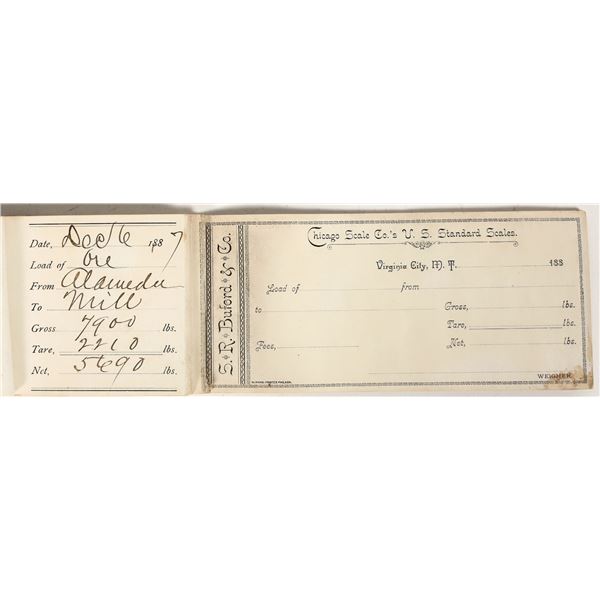 Date, Dec 6 1887
Load of Ore
From Alameda
To Mill
Gross 7900 lbs.
Tare, 2210 lbs.
Net, 5690 lbs.
S. R. Buford & Co.
Chicago Scale Co.'s U. S. Standard Scales.
Virginia City, M. T. 188
Load of from
to Gross, lbs.
Tare, lbs.
Fees, Net, lbs.
WEIGHER.